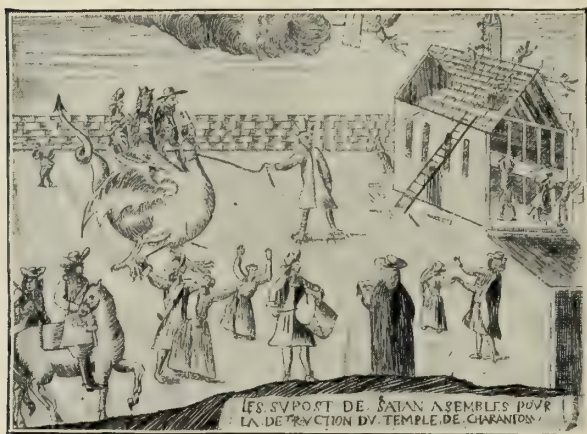 LES SVPOST DE SATAN ASEMBLES POVR
LA DETRVCTION DV TEMPLE DE CHARANTON